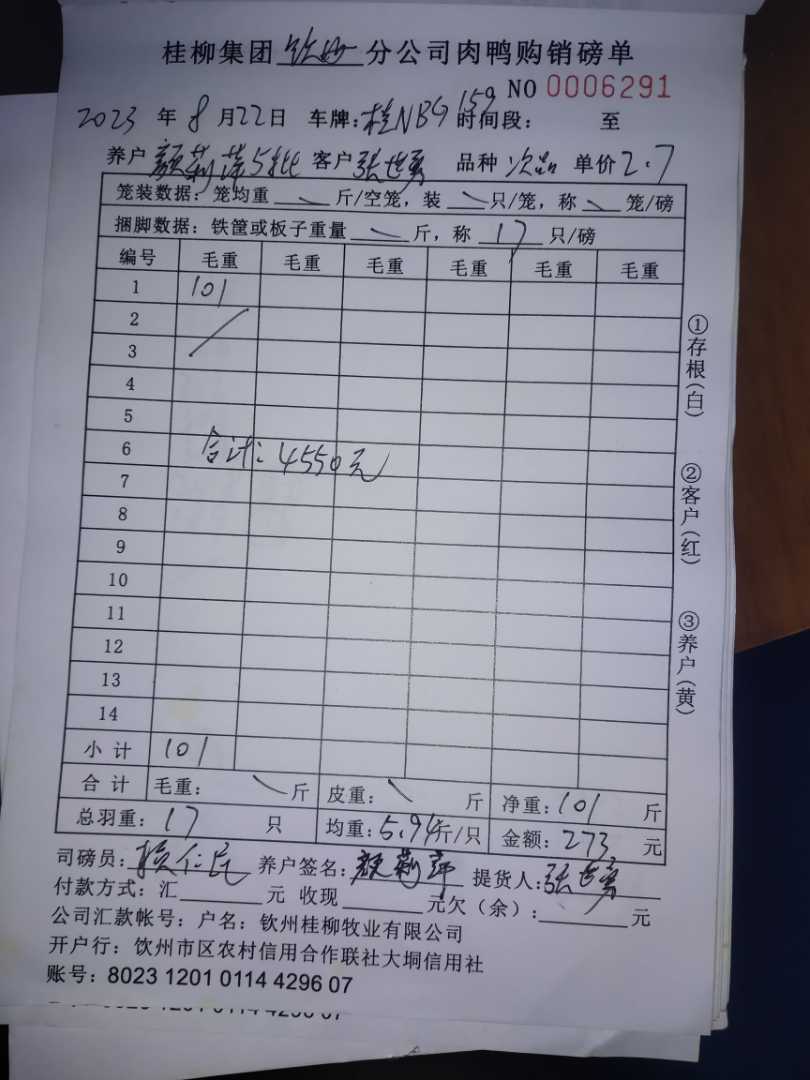 桂柳集团钦州分公司肉鸭购销磅单
NO 0006291
2023年8月22日 车牌:桂NBG159 时间段: 至
养户颜莉萍5批 客户张世勇 品种 次品 单价2.7
笼装数据:笼均重 斤/空笼,装 只/笼,称 笼/磅
捆脚数据:铁筐或板子重量 斤,称 17 只/磅
编号 毛重 毛重 毛重 毛重 毛重 毛重
1 101
2
3
4
5
6
合计:4550元
7
8
9
10
11
12
13
14
小计 101
合计 毛重: 斤 皮重: 斤 净重:101 斤
总羽重:17 只 均重:5.94斤/只 金额:273 元
司磅员: 养户签名:颜莉萍 提货人:张世勇
付款方式:汇 元 收现 元欠(余): 元
公司汇款帐号:户名:钦州桂柳牧业有限公司
开户行:饮州市区农村信用合作联社大垌信用社
账号:8023 1201 0114 4296 07
①存根(白)
②客户(红)
③养户(黄)